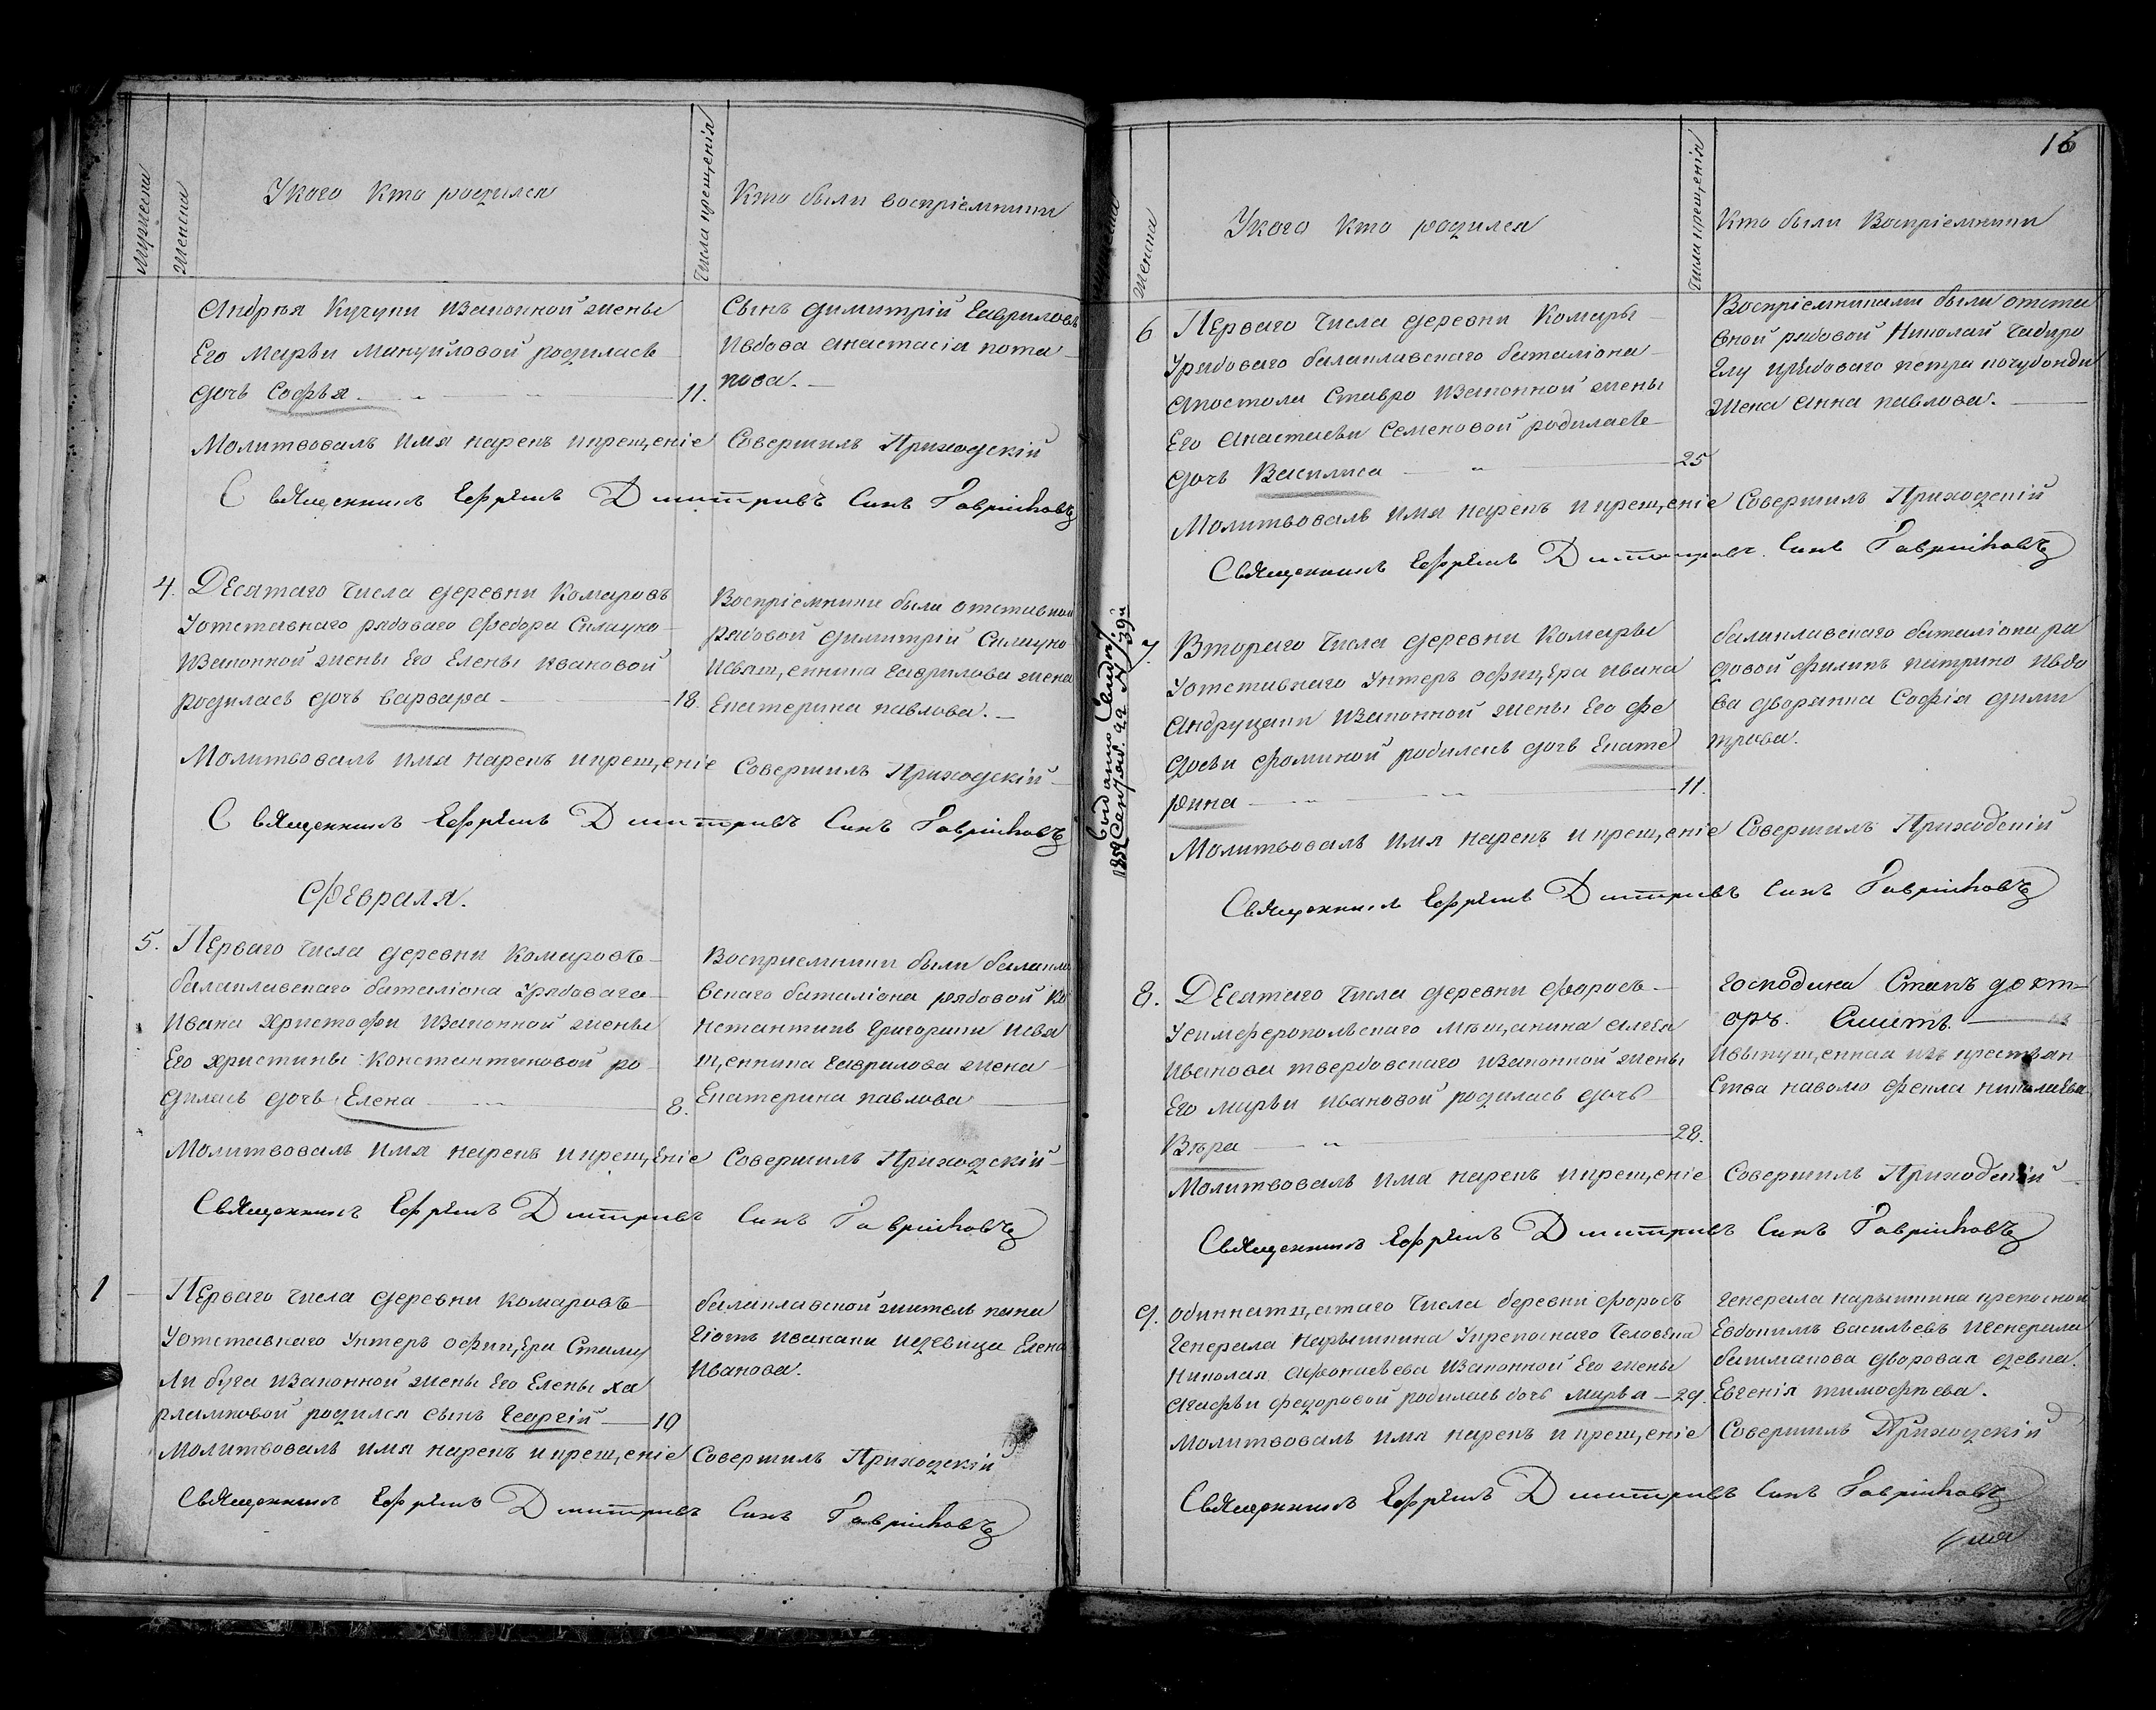 Мужеска
Женска
У кого кто родился
Числа крещенія
Кто были воспріемники
Андрея Кучуки Иззаконной жены
Его Марьи Мануйловой родилась
дочь Софья 11.
Сынъ Димитрій Гавриловъ
Ивдова Анастасія пота
пова.
Молитвовалъ Имя нарекъ икрещеніе Совершилъ Приходскій
Священникъ Ефремъ Дмитривъ Синъ Гаврииковъ
4. Десятаго Числа деревни Комаровъ
Уотставнаго рядоваго Федора
Иззаконной жены Его Елены Ивановой
родилась дочь Варвара 18.
Воспріемники были отставной
рядовой Димитрій
Исвященника Гаврилова жена
Екатерина павлова.
Молитвовалъ Имя нарекъ икрещеніе Совершилъ Приходскій
Священникъ Ефремъ Дмитривъ Синъ Гаврииковъ
Февраля.
5. Перваго Числа деревни Комаровъ
балаклавскаго баталіона Урядоваго
Ивана Христофи Иззаконной жены
Его Христины Константиновой ро
дилась дочь Елена 8.
Восприемники были балакла
вскаго баталіона рядовой Ко
нстантинъ Григораки Исвя
щенника Гаврилова жена
Екатерина павлова
Молитвовалъ Имя нарекъ икрещеніе Совершилъ Приходскій
Священникъ Ефремъ Дмитривъ Синъ Гаврииковъ
1 Перваго Числа деревни Комаровъ
Уотставнаго Унтеръ офицера
Иззаконной жены Его Елены Ха
рламповой родился сынъ Георгій 10
балаклавской житель пана
гіотъ Иванаки идевица Елена
Иванова.
Молитвовалъ имя нарекъ икрещеніе Совершилъ Приходскій
Священникъ Ефремъ Дмитривъ Синъ Гаврииковъ
16
Мужеска
Женска
У кого кто родился
Числа крещенія
Кто были Воспріемники
6 Перваго Числа деревни Комары
Урядоваго балаклавскаго баталіона
Апостола Ставро Иззаконной жены
Его Анастасьи Семеновой родилась
дочь Василиса 25
Воспріемниками были отста
вной рядовой Николай
иРядоваго петра
жена Анна павлова.
Молитвовалъ имя нарекъ икрещеніе Совершилъ Приходскій
Священникъ Ефремъ Дмитривъ Синъ Гаврииковъ
1852
7. Втораго Числа деревни Комары
Уотставнаго Унтеръ офицера Ивана
Андруцаки Иззаконной жены Его фе
досьи фоминой родилась дочь Екате
рина 11.
балаклавскаго баталіона ря
довой филипъ патрино Ивдо
ва дворянка Софія дими
трова.
Молитвовалъ Имя нарекъ и крещеніе Совершилъ Приходскій
Священникъ Ефремъ Дмитривъ Синъ Гаврииковъ
8. Десятаго Числа деревни Форосъ
Усимферопольскаго Мѣщанина
Иванова твердовскаго Иззаконной жены
Его Марьи Ивановой родилась дочь
Вѣра 28.
Господина Стапъ докт
оръ.
Ивыпущенная изъ крестьян
ства наволю Фекла николаева
Молитвовалъ Има нарекъ икрещеніе Совершилъ Приходскій
Священникъ Ефремъ Дмитривъ Синъ Гаврииковъ
9. одиннатцатаго Числа деревни Форосъ
Генерала нарышкина Укрепоснаго Человека
Николая Афонасьева Иззаконной Его жены
Агафьи федоровой родилась дочь Марья 29.
Генерала нарышкина крепосной
Евдокимъ Васильевъ Игенерала
башмакова дворовая девка
Евгенія тимофѣева.
Молитвовалъ имя нарекъ икрещеніе Совершилъ Приходскій
Священникъ Ефремъ Дмитривъ Синъ Гаврииковъ